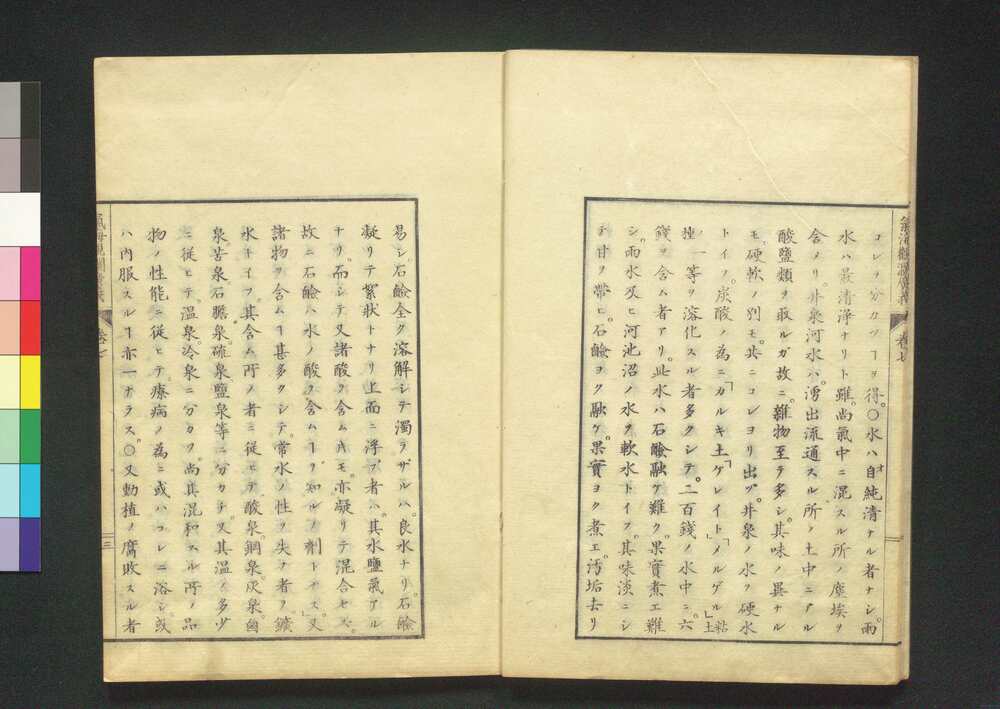 氣海觀瀾廣義 卷七
コレヲ分カツヿヲ得。〇水ハ自純清ナル者ナシ。雨
水ハ最清淨ナリト雖。尚氣中ニ混スル所ノ塵埃ヲ
含メリ。井泉河水ハ。湧出流通スル所ノ土中ニアル
酸鹽類ヲ取ルガ故ニ。雜物至テ多シ。其味ノ異ナル
モ。硬軟ノ別モ。共ニコレヨリ出ヅ。井泉ノ水ヲ硬水
トイフ。炭酸ノ為ニ「カルキ土」「ゲレイト」「メルゲル」粘土
一等ヲ溶化スル者多クシテ。一二百錢ノ水中ニ。六
錢ヲ含ム者アリ。此水ハ石鹼融ケ難ク。果實煮エ難
シ。雨水及ヒ河池沼ノ水ヲ軟水トイフ。其味淡ニシ
テ甘ヲ帶ヒ。石鹼ヨク融ケ。果實ヨク煮エ。汚垢去リ
易シ。石鹼全ク溶解シテ濁ラザルハ。良水ナリ。石鹼
凝リテ絮狀トナリ上面ニ浮ブ者ハ。其水鹽氣アル
ナリ。而シテ又諸酸ヲ含ムモ。亦凝リテ混合セス。
故ニ石鹼ハ水ノ酸ヲ含ムヿヲ知ルノ劑トナス。又
諸物ヲ含ムヿ甚多クシテ。常水ノ性ヲ失フ者ヲ鑛
水トイフ。其含ム所ノ者ニ從ヒテ酸泉。鋼泉。灰泉鹵
泉。苦泉。石膽泉。硫泉。鹽泉等ニ分カチ。又其溫ノ多少
ニ從ヒテ。溫泉。冷泉ニ分カツ。尚其混和スル所ノ品
物ノ性能ニ從ヒテ。療病ノ為ニ或ハコレニ浴シ。或
ハ內服スルヿ亦一ナラス。〇又動植ノ腐敗スル者
卷七
三